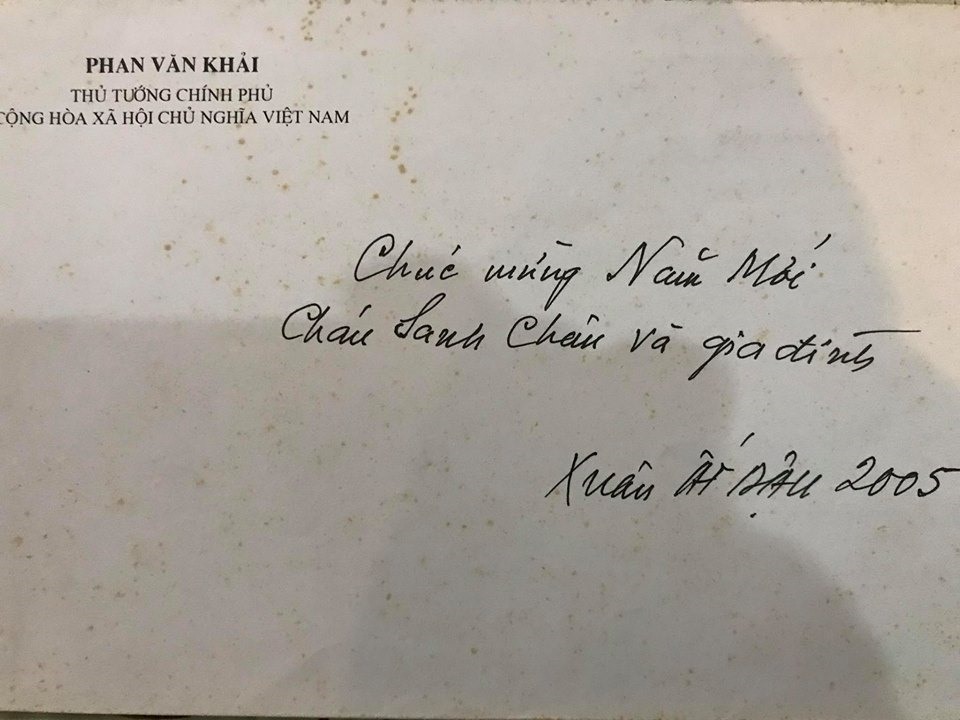 PHAN VĂN KHẢI
THỦ TƯỚNG CHÍNH PHỦ
CỘNG HÒA XÃ HỘI CHỦ NGHĨA VIỆT NAM
Chúc mừng Năm Mới
Cháu Sanh Châu và gia đình
Xuân ẤT DẬU 2005